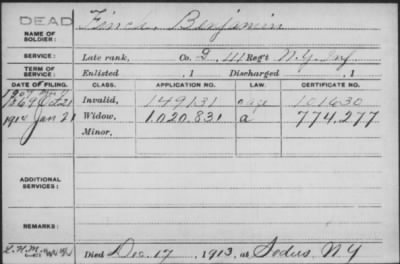 DEAD
NAME OF SOLDIER: Finch, Benjamin
SERVICE: Late rank, Co. G, 111 Regt N.Y. Inf
TERM OF SERVICE: Enlisted , 1 Discharged , 1
DATE OF FILING. CLASS. APPLICATION NO. LAW. CERTIFICATE NO.
1869 Oct 21 Invalid, 149131 101630
1914 Jan 21 Widow, 1.020.831 a 774.277
Minor,
ADDITIONAL SERVICES:
REMARKS:
Died Dec. 17, 1913, at Sodus, N Y